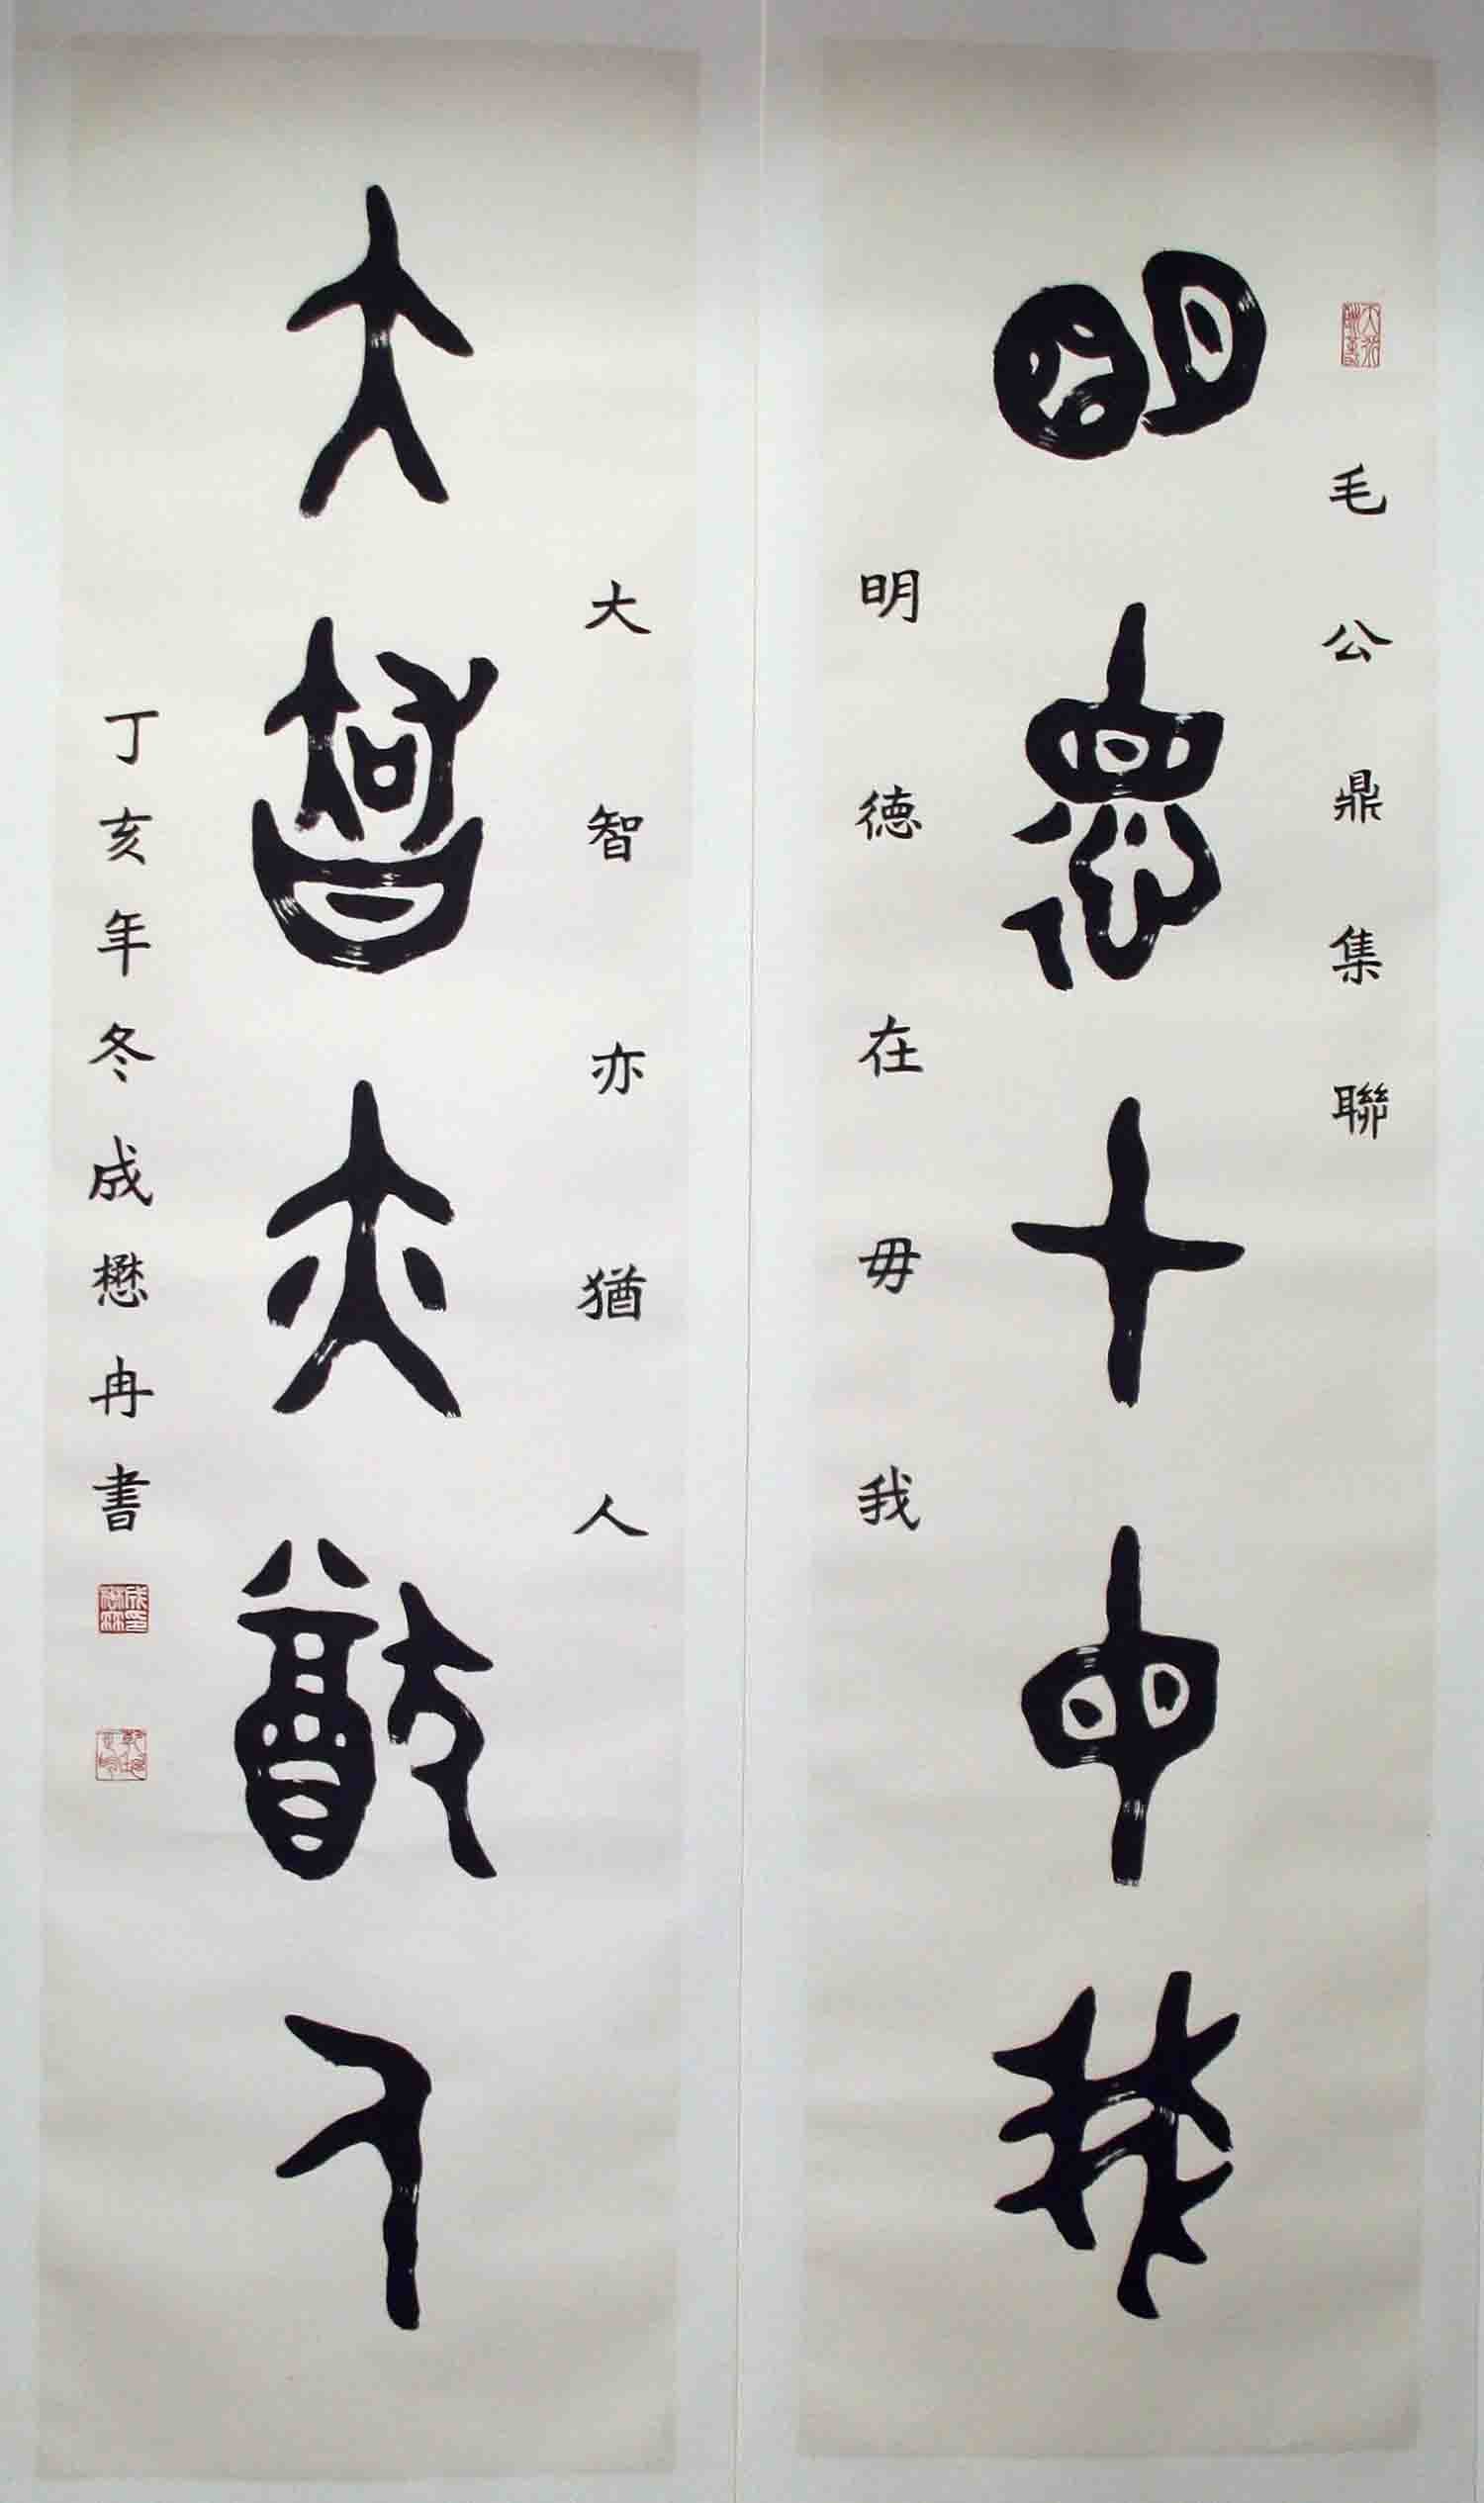 毛公鼎集聯
明德在毋我
明德在毋我
大智亦猶人
大智亦猶人
丁亥年冬成懋冉書